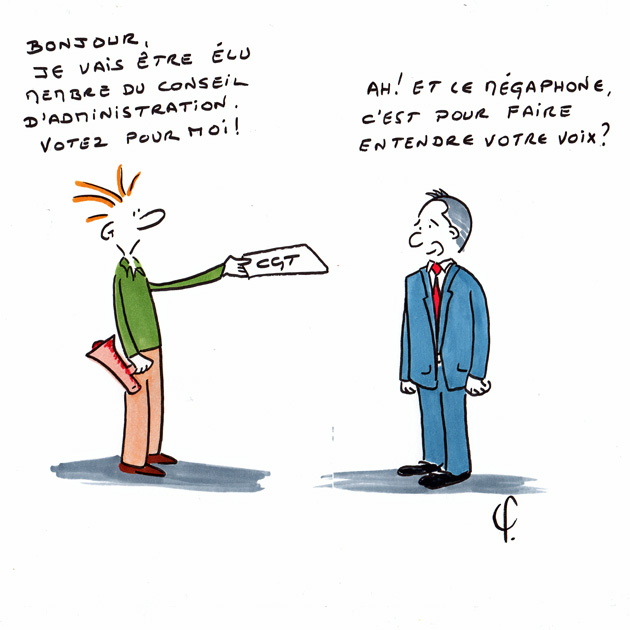 BONJOUR,
JE VAIS ÊTRE ÉLU
MEMBRE DU CONSEIL
D'ADMINISTRATION.
VOTEZ POUR MOI!
AH! ET LE MÉGAPHONE,
C'EST POUR FAIRE
ENTENDRE VOTRE VOIX?
CGT